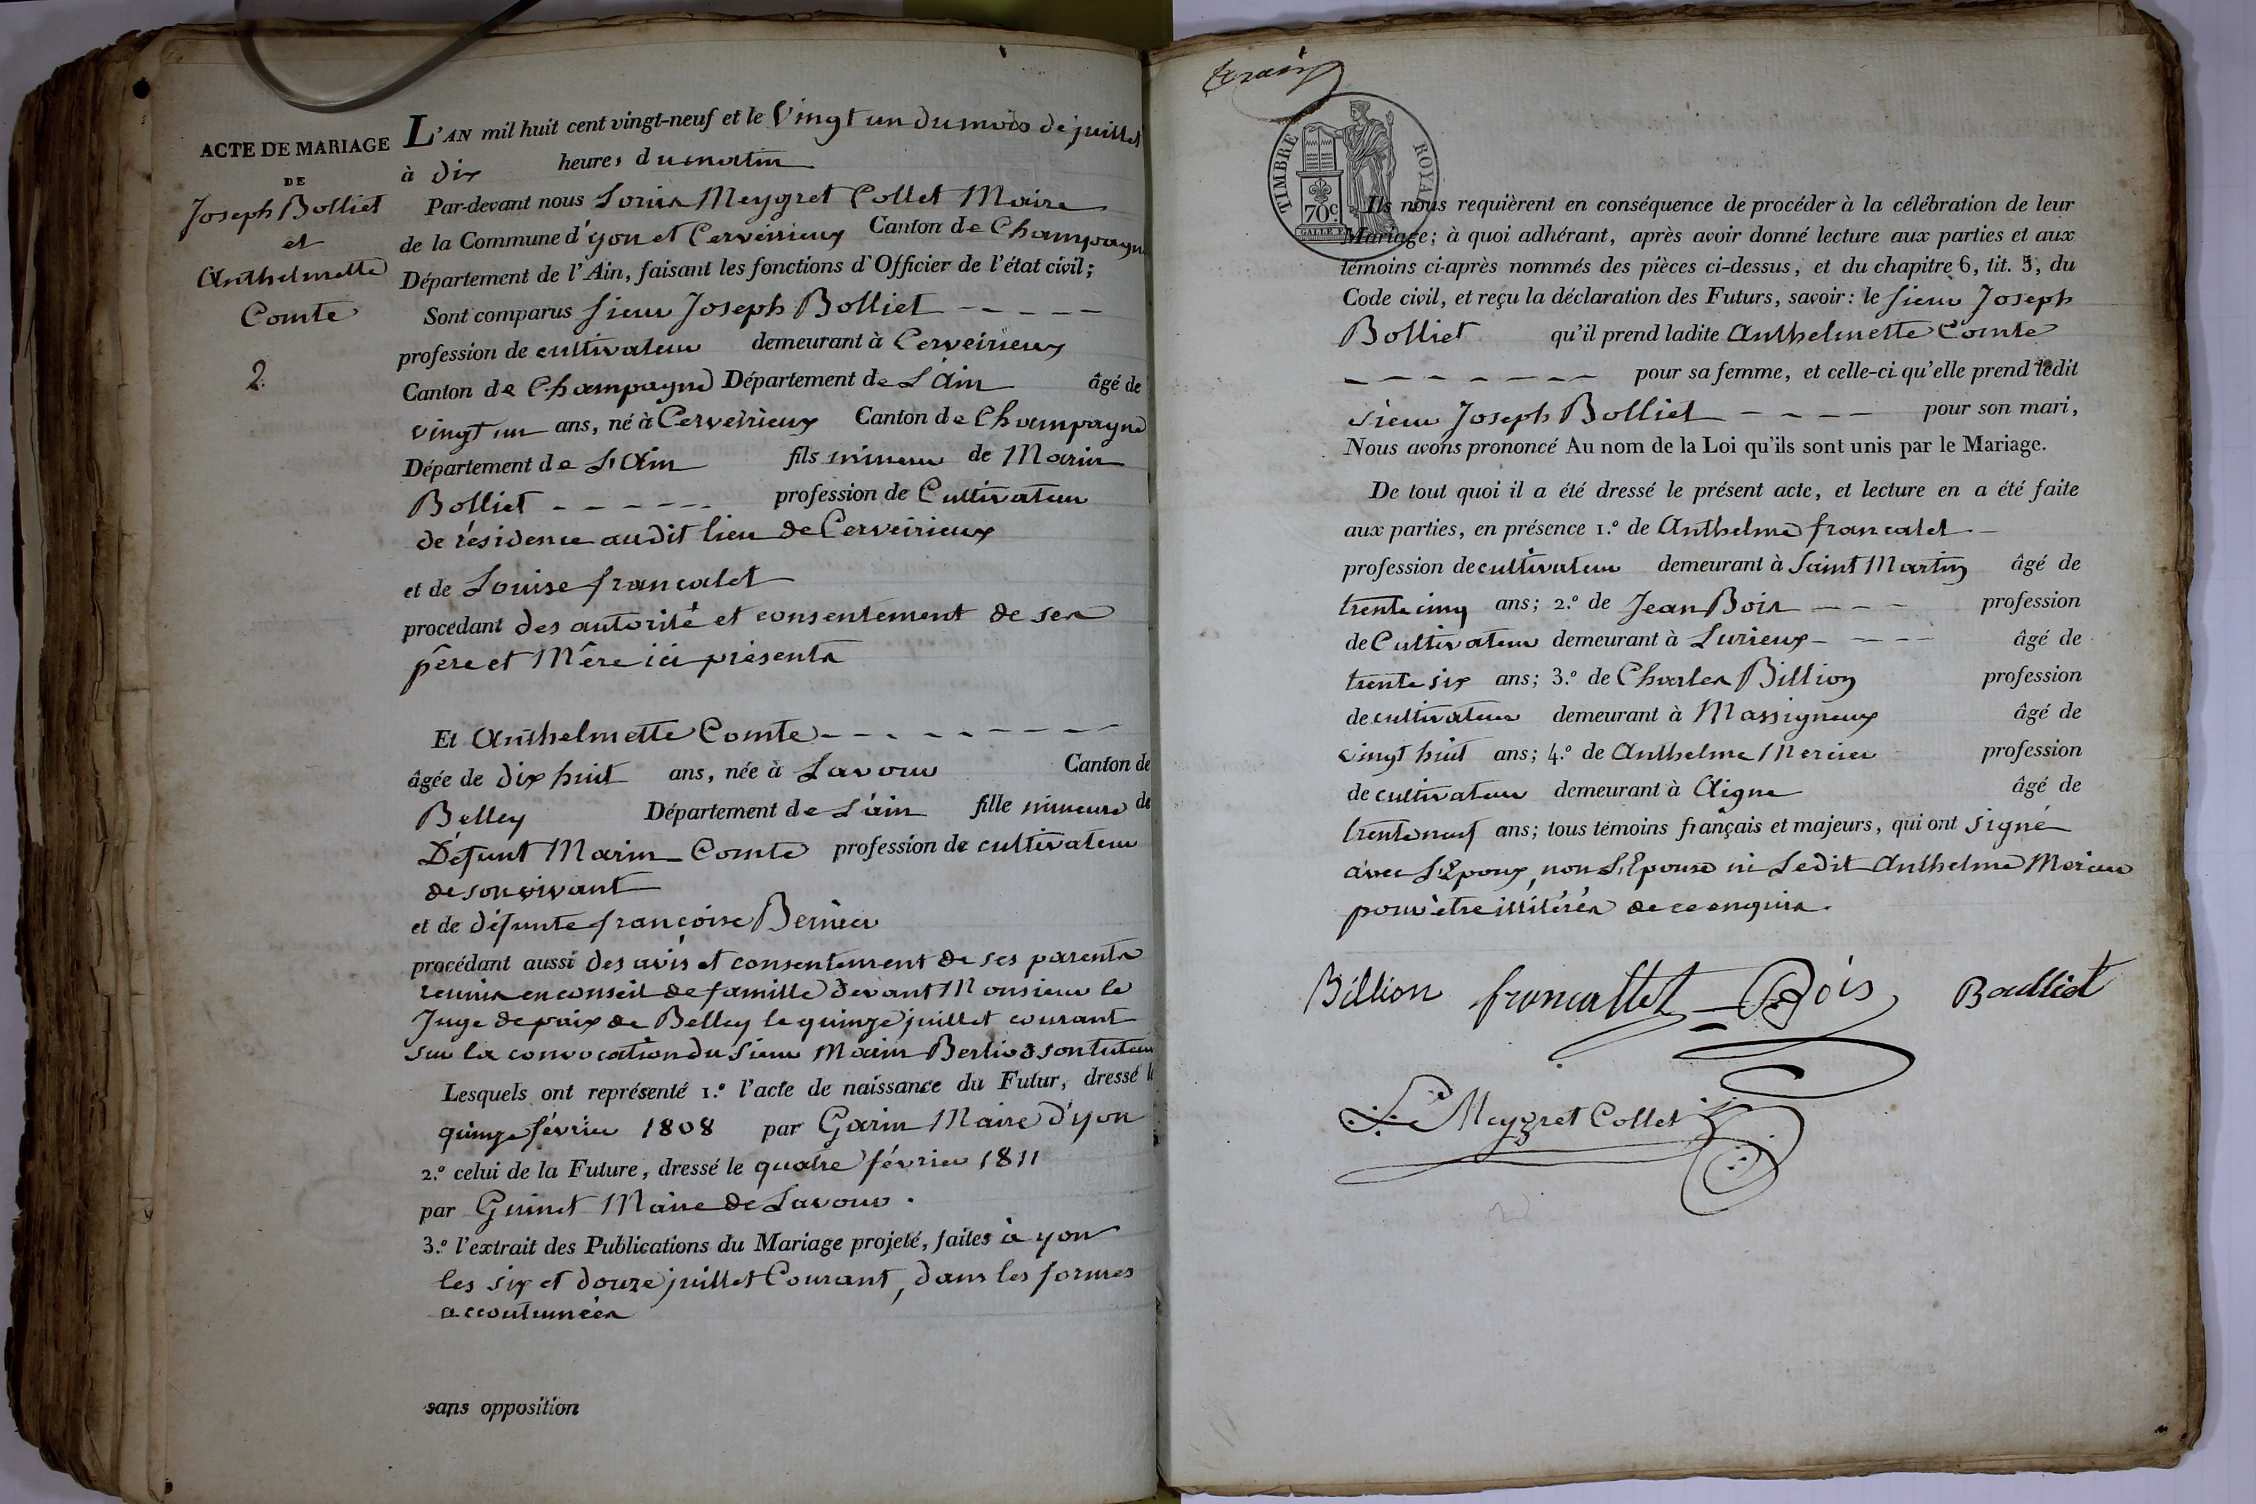 ACTE DE MARIAGE
DE
Joseph Bolliet
et
Anthelmette
Comte
2.
L'AN mil huit cent vingt-neuf et le Vingt un du mois de juillet
à dix heures du matin
Par-devant nous Louis Meygret Collet Maire
de la Commune d'yon et Cerveirieux Canton de Champagne
Département de l'Ain, faisant les fonctions d'Officier de l'état civil;
Sont comparus sieur Joseph Bolliet
profession de cultivateur demeurant à Cerveirieux
Canton de Champagne Département de L'Ain âgé de
vingt un ans, né à Cerveirieux Canton de Champagne
Département de L'Ain fils mineur de Marin
Bolliet profession de Cultivateur
de résidence audit lieu de Cerveirieux
et de Louise francalet
procédant des autorité et consentement de ses
père et Mère ici présents
Et Anthelmette Comte
âgée de dix huit ans, née à Lavour Canton de
Belley Département de L'ain fille mineure de
Défunt Marin Comte profession de cultivateur
de son vivant
et de défunte françoise Bernier
procédant aussi des avis et consentement de ses parents
reunis en conseil de famille devant Monsieur le
Juge de paix de Belley le quinze juillet courant
sur la convocation du sieur Marin Berlioz son tuteur
Lesquels ont représenté 1.º l'acte de naissance du Futur, dressé le
quinze février 1808 par Garin Maire d'yon
2.º celui de la Future, dressé le quatre février 1811
par Guinet Maire de Lavour.
3.º l'extrait des Publications du Mariage projeté, faites à yon
les six et douze juillet Courant, dans les formes
accoutumées
sans opposition
TIMBRE ROYAL
70c
Ils nous requièrent en conséquence de procéder à la célébration de leur
Mariage; à quoi adhérant, après avoir donné lecture aux parties et aux
témoins ci-après nommés des pièces ci-dessus, et du chapitre 6, tit. 5, du
Code civil, et reçu la déclaration des Futurs, savoir: le sieur Joseph
Bolliet qu'il prend ladite Anthelmette Comte
pour sa femme, et celle-ci qu'elle prend ledit
sieur Joseph Bolliet pour son mari,
Nous avons prononcé Au nom de la Loi qu'ils sont unis par le Mariage.
De tout quoi il a été dressé le présent acte, et lecture en a été faite
aux parties, en présence 1.º de Anthelme francalet
profession de cultivateur demeurant à Saint Martin âgé de
trente cinq ans; 2.º de Jean Bois profession
de Cultivateur demeurant à Lurieux âgé de
trente six ans; 3.º de Charles Billion profession
de cultivateur demeurant à Massigneux âgé de
vingt huit ans; 4.º de Anthelme Mercier profession
de cultivateur demeurant à Aigne âgé de
trente neuf ans; tous témoins français et majeurs, qui ont signé
avec L'Epoux, non L'Epouse ni Ledit Anthelme Mercier
pour être illitérés de ce enquis.
Billion francallet Bois Boulliet
Ls Meygret Collet